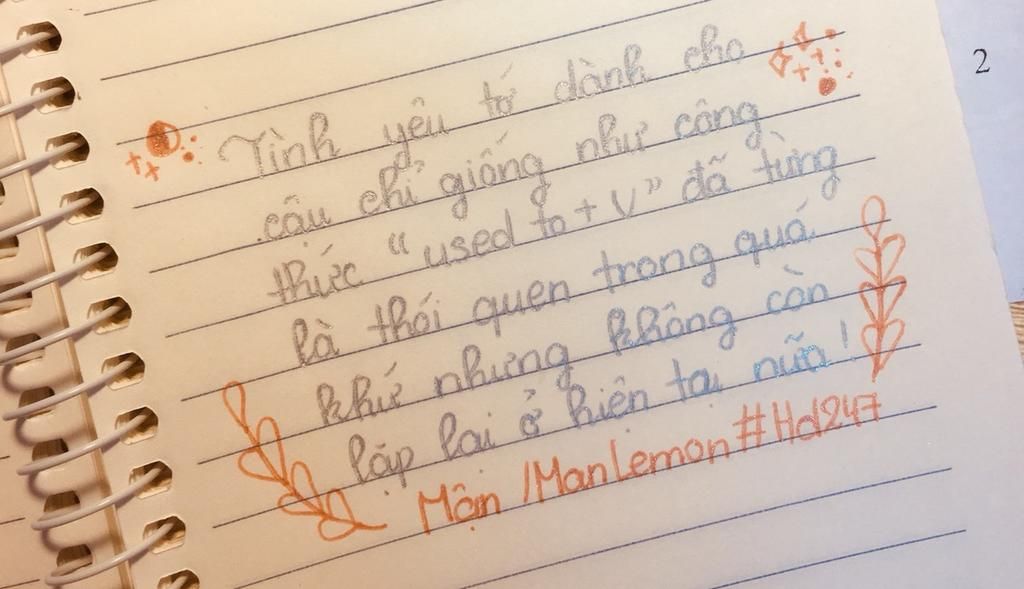 Tình yêu tớ dành cho
cậu chỉ giống như công
thức “used to + V” đã từng
là thói quen trong quá
khứ nhưng không còn
lặp lại ở hiện tại nữa!
Mận /ManLemon#Hd247
2